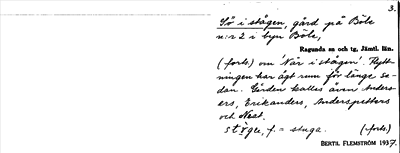 3.
Sö i stôgen, gård på Böle
n:r 2 i byn Böle,
Ragunda sn och tg, Jämtl. län.
(forts.) om 'När i stôgen'. Flytt-
ningen har ägt rum för länge se-
dan. Gården kallas även Anders-
ers, Erikanders, Anderspetters
och Neat.
f. = stuga. (forts.)
BERTIL FLEMSTRÖM 1937.